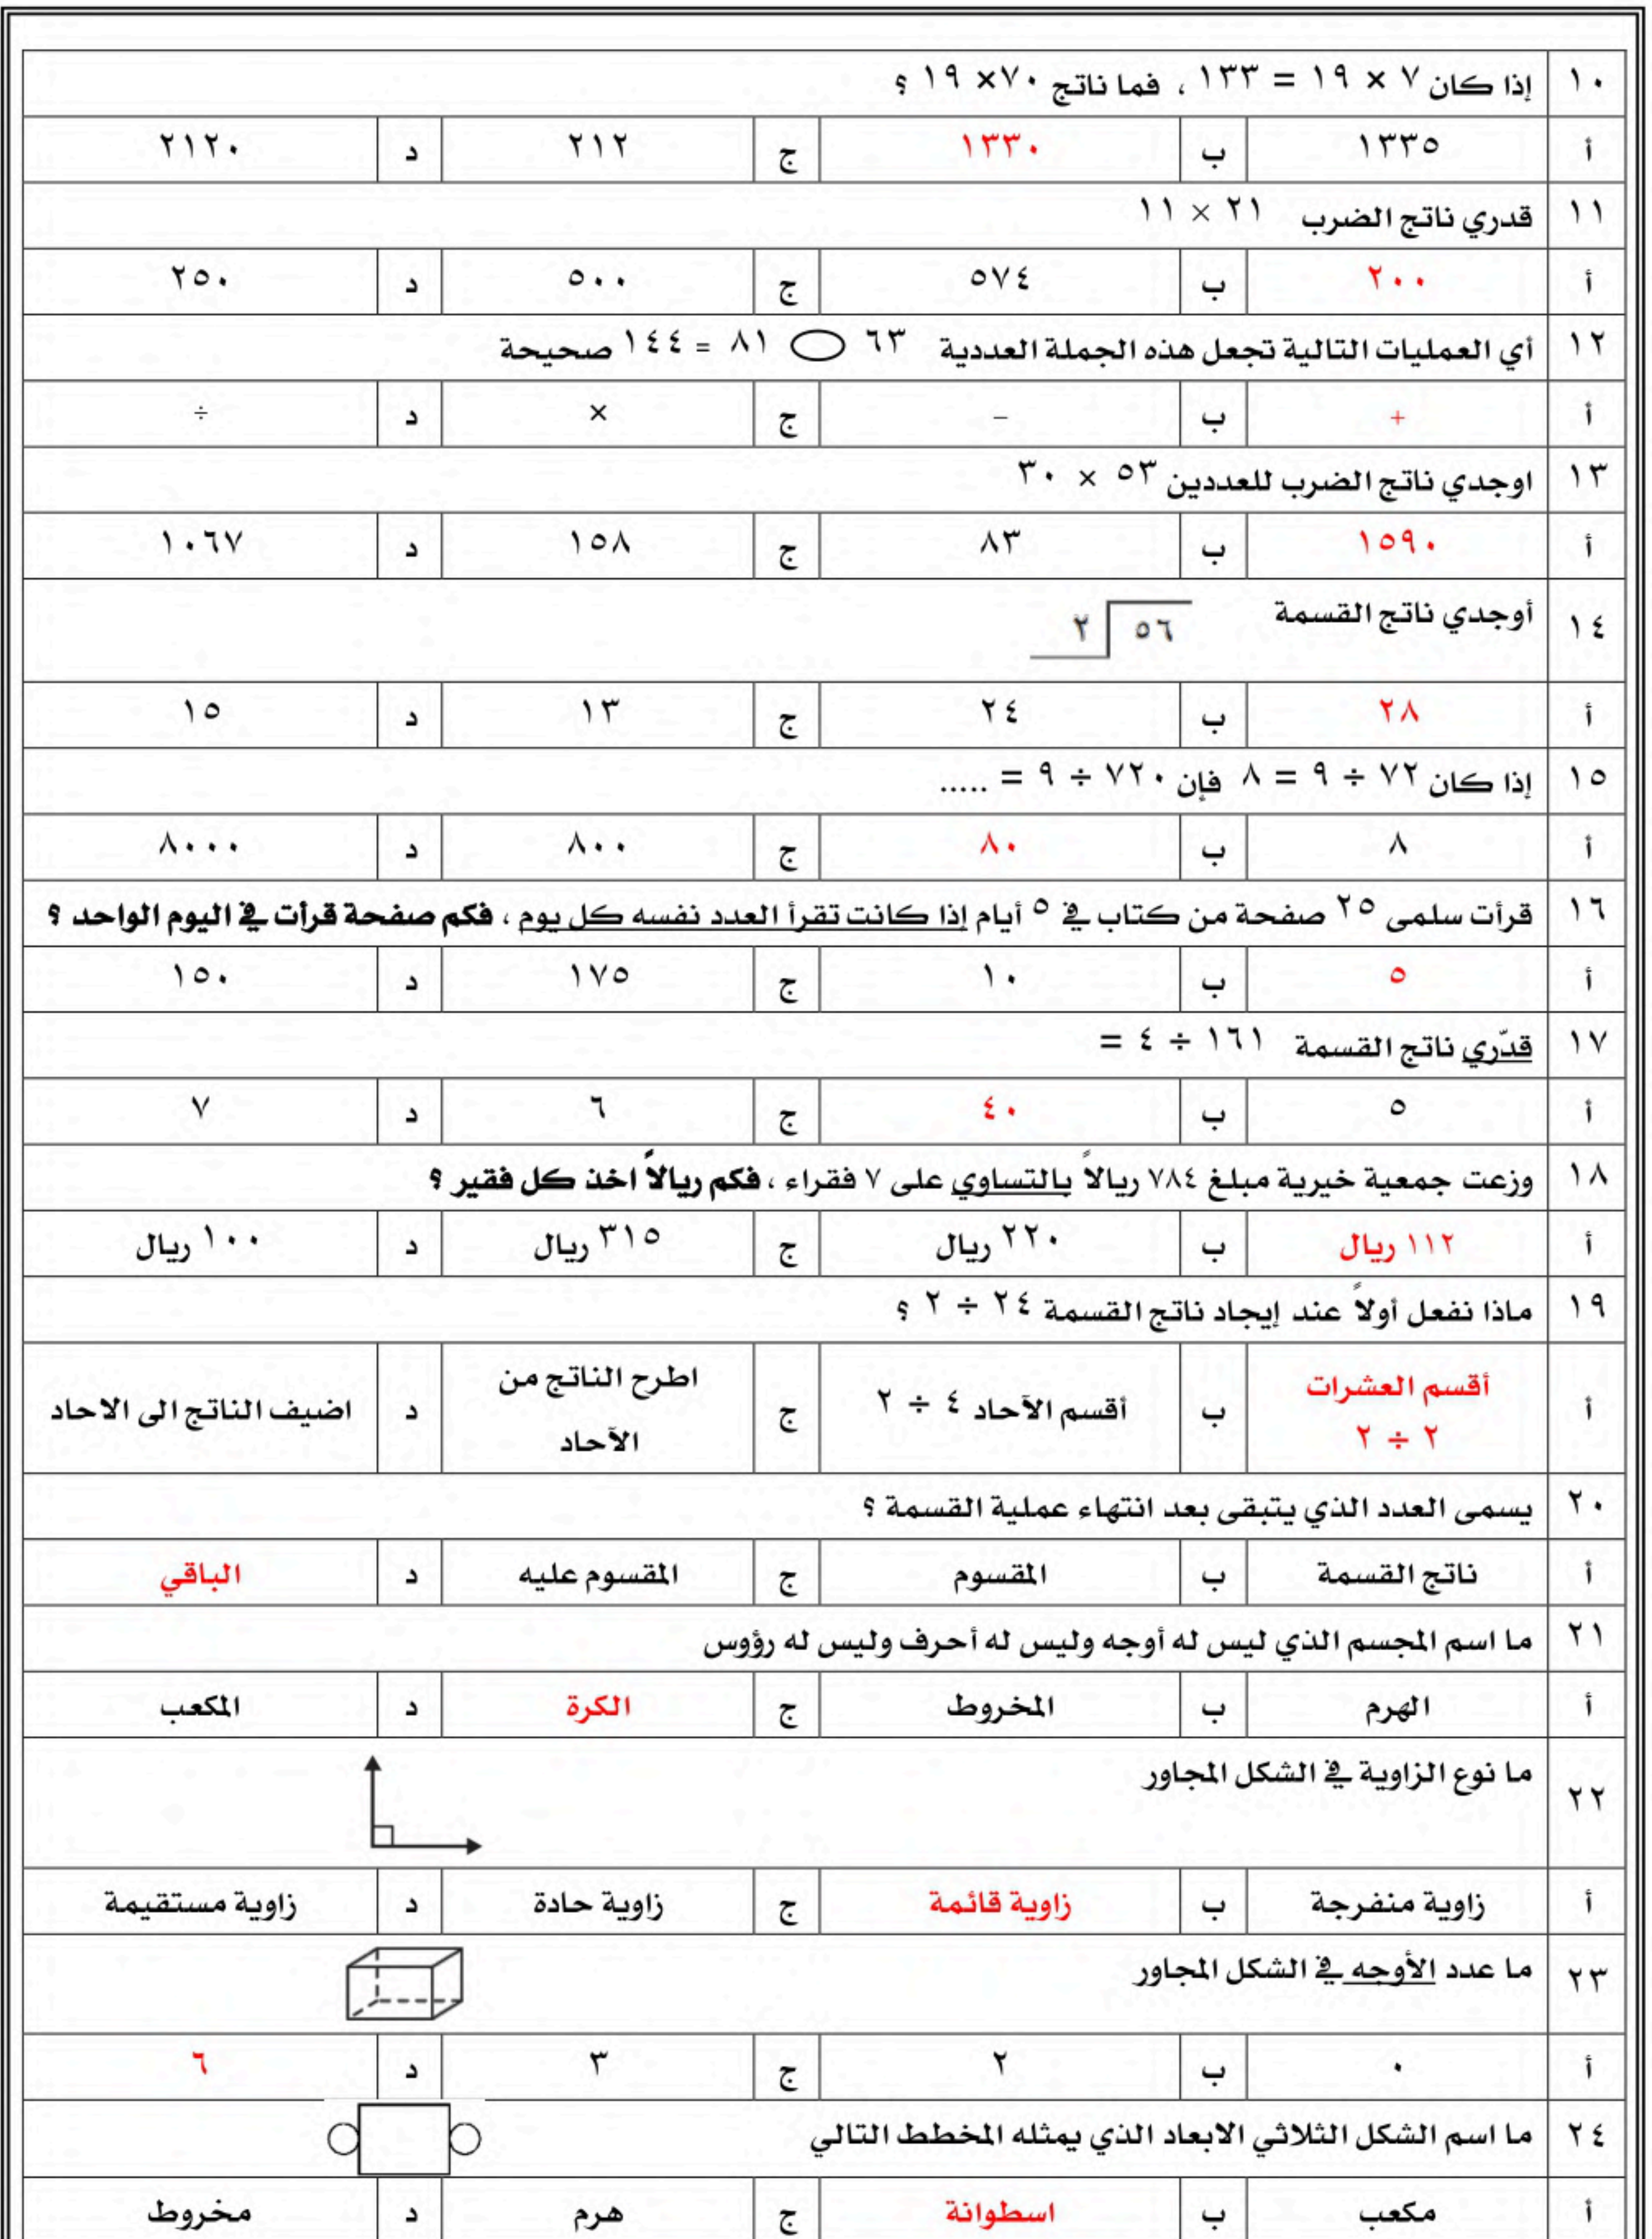 ١٠ إذا كان ٧ × ١٩ = ١٣٣ ، فما ناتج ٧٠× ١٩ ؟
أ ١٣٣٥ ب ١٣٣٠ ج ٢١٢ د ٢١٢٠
١١ قدري ناتج الضرب ٢١ × ١١
أ ٢٠٠ ب ٥٧٤ ج ٥٠٠ د ٢٥٠
١٢ أي العمليات التالية تجعل هذه الجملة العددية ٦٣ ◯ ٨١ = ١٤٤ صحيحة
أ + ب − ج × د ÷
١٣ اوجدي ناتج الضرب للعددين ٥٣ × ٣٠
أ ١٥٩٠ ب ٨٣ ج ١٥٨ د ١٠٦٧
١٤ أوجدي ناتج القسمة ٥٦ ٢
أ ٢٨ ب ٢٤ ج ١٣ د ١٥
١٥ إذا كان ٧٢ ÷ ٩ = ٨ فإن ٧٢٠ ÷ ٩ = .....
أ ٨ ب ٨٠ ج ٨٠٠ د ٨٠٠٠
١٦ قرأت سلمى ٢٥ صفحة من كتاب في ٥ أيام إذا كانت تقرأ العدد نفسه كل يوم ، فكم صفحة قرأت في اليوم الواحد ؟
أ ٥ ب ١٠ ج ١٧٥ د ١٥٠
١٧ قدّري ناتج القسمة ١٦١ ÷ ٤ =
أ ٥ ب ٤٠ ج ٦ د ٧
١٨ وزعت جمعية خيرية مبلغ ٧٨٤ ريالاً بالتساوي على ٧ فقراء ، فكم ريالاً اخذ كل فقير ؟
أ ١١٢ ريال ب ٢٢٠ ريال ج ٣١٥ ريال د ١٠٠ ريال
١٩ ماذا نفعل أولاً عند إيجاد ناتج القسمة ٢٤ ÷ ٢ ؟
أ أقسم العشرات ٢ ÷ ٢ ب أقسم الآحاد ٤ ÷ ٢ ج اطرح الناتج من الآحاد د اضيف الناتج الى الاحاد
٢٠ يسمى العدد الذي يتبقى بعد انتهاء عملية القسمة ؟
أ ناتج القسمة ب المقسوم ج المقسوم عليه د الباقي
٢١ ما اسم المجسم الذي ليس له أوجه وليس له أحرف وليس له رؤوس
أ الهرم ب المخروط ج الكرة د المكعب
٢٢ ما نوع الزاوية في الشكل المجاور
أ زاوية منفرجة ب زاوية قائمة ج زاوية حادة د زاوية مستقيمة
٢٣ ما عدد الأوجه في الشكل المجاور
أ ٠ ب ٢ ج ٣ د ٦
٢٤ ما اسم الشكل الثلاثي الابعاد الذي يمثله المخطط التالي
أ مكعب ب اسطوانة ج هرم د مخروط